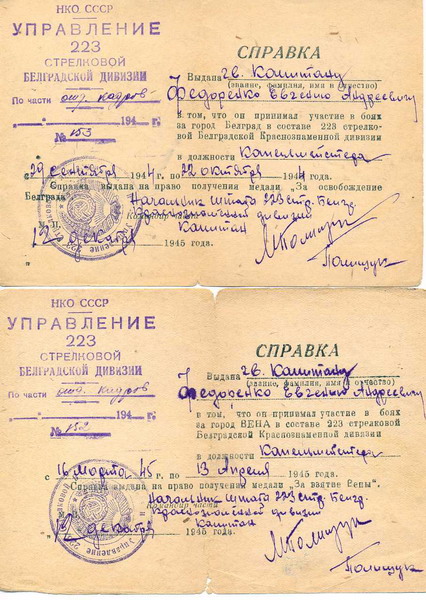 НКО СССР
УПРАВЛЕНИЕ
223
СТРЕЛКОВОЙ
БЕЛГРАДСКОЙ ДИВИЗИИ
По части отд. кадров
194 г.
№ 153
СПРАВКА
Выдана гв. Капитану
(звание, фамилия, имя и отчество)
Федоренко Евгению Андреевичу
в том, что он принимал участие в боях
за город Белград в составе 223 стрелко-
вой Белградской Краснознаменной дивизии
в должности Капельмейстера
с 29 сентября 1944 г. по 22 октября 1944 г.
Справка выдана на право получения медали „За освобождение
Белграда“.
Начальник штаба 223 стр. Белгр.
Краснознаменной дивизии
Капитан
12 декабря 1945 года.
Полищук
НКО СССР
УПРАВЛЕНИЕ
223
СТРЕЛКОВОЙ
БЕЛГРАДСКОЙ ДИВИЗИИ
По части отд. кадров
194 г.
№ 152
СПРАВКА
Выдана гв. Капитану
(звание, фамилия, имя и отчество)
Федоренко Евгению Андреевичу
в том, что он принимал участие в боях
за город ВЕНА в составе 223 стрелковой
Белградской Краснознаменной дивизии
в должности Капельмейстера
с 16 марта 45 г. по 13 Апреля 1945 г.
Справка выдана на право получения медали „За взятие Вены“.
Начальник штаба 223 стр. Белгр.
Командир части
Краснознаменной дивизии
Капитан
12 декабря 1945 года.
Полищук